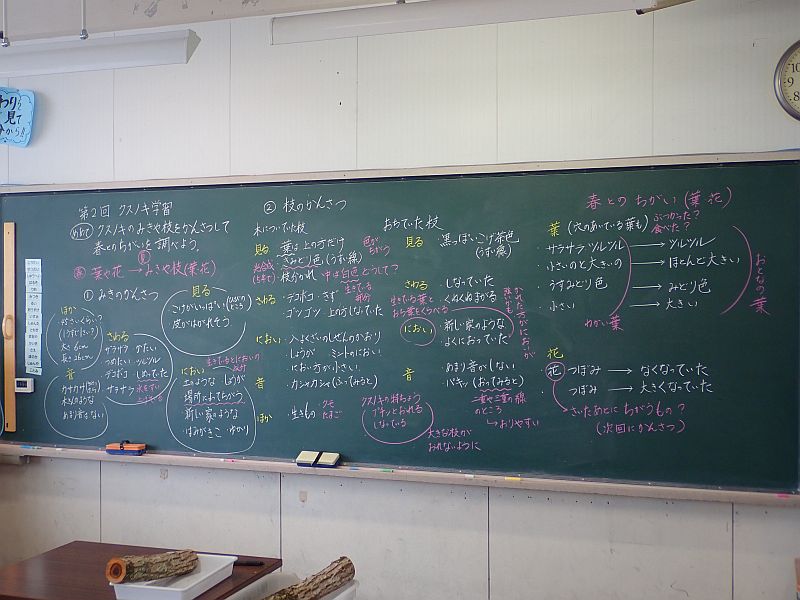 第2回 クスノキ学習
めあて クスノキのみきや枝をかんさつして
春とのちがいを調べよう。
春 葉や花 → 夏 みきや枝(葉花)
① みきのかんさつ
ほか
太さ 6cm
長さ 26cm
音
あまり音はない
さわる
サラサラ かたい
つめたい ツルツル
デコボコ しめってた
見る
こけがいっぱい
皮がはがれそう
におい
土のような しょうが
場所によってちがう
新しい家のような
はみがきこ ゆかり
② 枝のかんさつ
木についていた枝
見る 葉は上の方だけ
きみどり色(うすい緑)
枝分かれ 中は白色 どうして?
色がちがう
生きている部分
さわる ・デコボコ・さす
ゴツゴツ 上の方しなっていた
におい ・入よくざいのしぜんのかおり
・しょうが ミントのにおい
・におい方が小さい
音 ・カシャカシャ(ふってみると)
ほか ・生きもの クモ たまご
おちていた枝
見る 黒っぽいこげ茶色
(うすい線)
さわる ・しなっていた
・くねくねまがる
生きている葉と
おち葉をくらべる
におい ・新しい家のような
・よくにおっていた
音 ・あまり音がしない
・バキッ(おってみると)
のところ
→おりやすい
クスノキの特ちょう
プチンとおれる
しなっている
大きな枝が
おれないように
春とのちがい(葉花)
葉 (穴のあいている葉も) ぶつかった?
食べた?
・サラサラツルツル → ツルツル
・小さいのと大きいの → ほとんど大きい
・うすみどり色 → みどり色
・小さい → 大きい
わかい葉
おとなの葉
花
花 つぼみ → なくなっていた
つぼみ → 大きくなっていた
さいたあとに ちがうもの?
(次回にかんさつ)
10
9
8